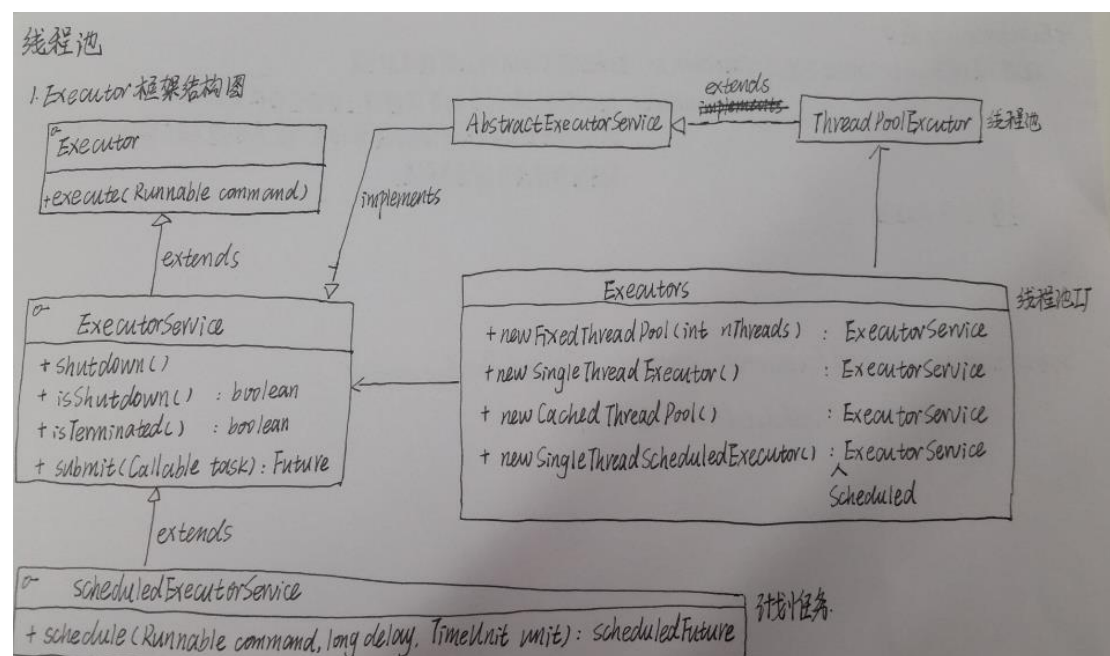 线程池
1. Executor框架结构图
Executor
+execute(Runnable command)
extends
ExecutorService
+ shutdown()
+ isShutdown() : boolean
+ isTerminated() : boolean
+ submit(Callable task): Future
extends
scheduledExecutorService
+ schedule(Runnable command, long delay, TimeUnit unit): scheduledFuture
计划任务
implements
AbstractExecutorService
extends
implements
ThreadPoolExcutor
线程池
Executors
+ newFixedThreadPool(int nThreads) : ExecutorService
+ newSingleThreadExecutor() : ExecutorService
+ newCachedThreadPool() : ExecutorService
+ newSingleThreadScheduledExecutor() : ExecutorService
Scheduled
线程池工厂